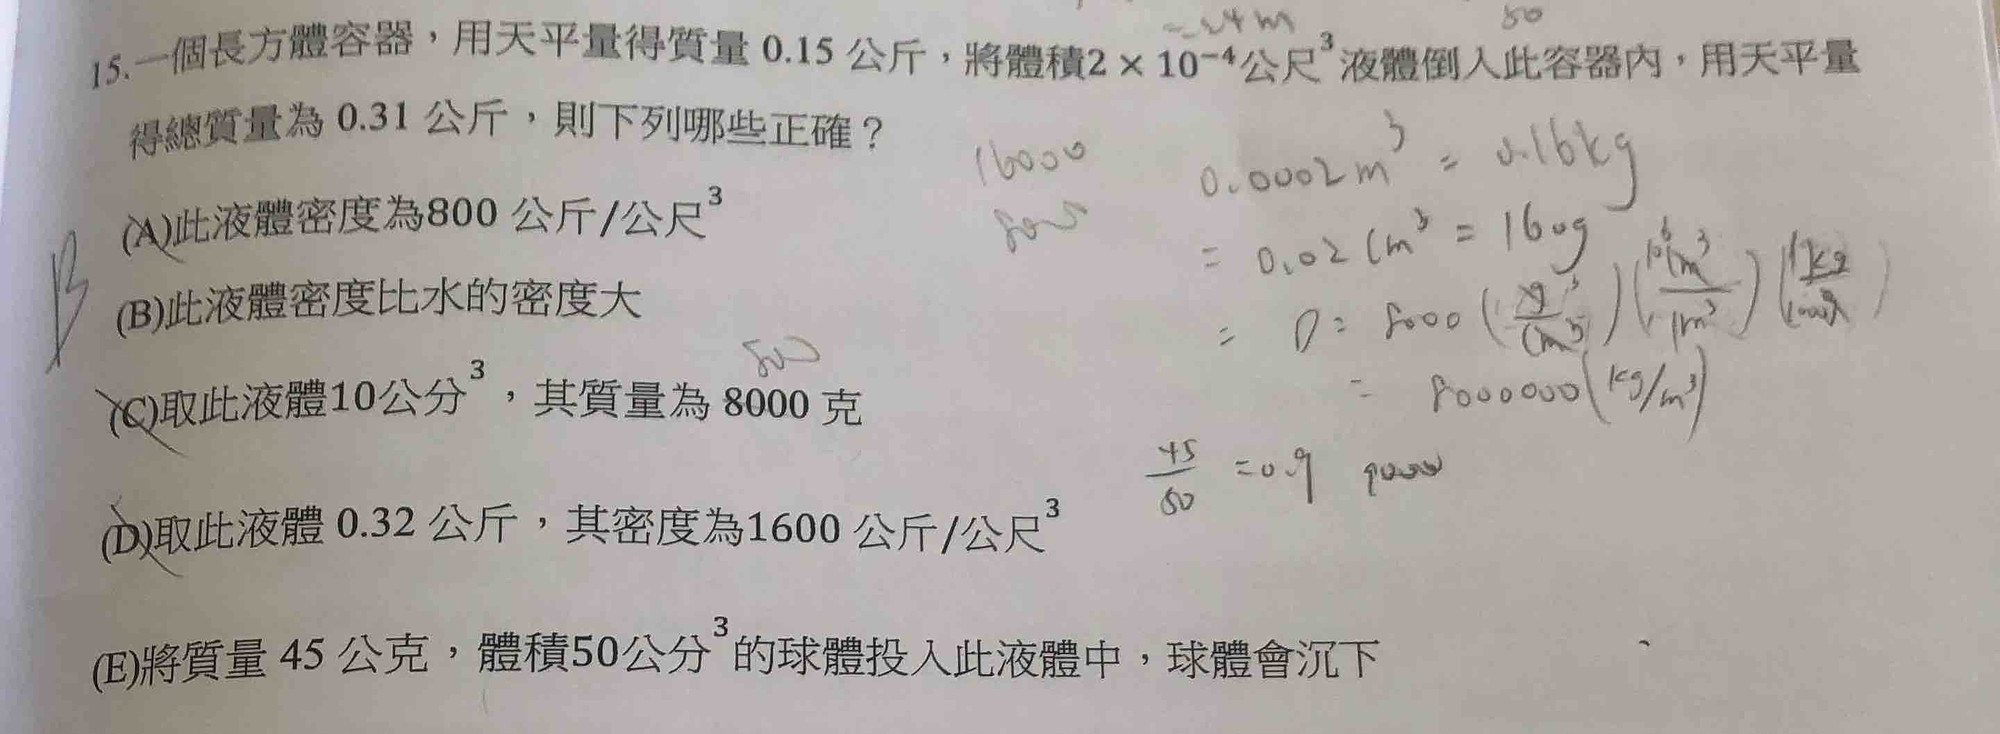 15.一個長方體容器，用天平量得質量 0.15 公斤，將體積2 × 10⁻⁴公尺³液體倒入此容器內，用天平量
得總質量為 0.31 公斤，則下列哪些正確？
16000
0.0002m³ = 0.16kg
(A)此液體密度為800 公斤/公尺³
= 0.02 cm³ = 160g
B
(B)此液體密度比水的密度大
= D = 8000 (g/cm³) (10⁶cm³/1m³) (1kg/1000g)
(C)取此液體10公分³，其質量為 8000 克
= 8000000 (kg/m³)
45/50 = 0.9
(D)取此液體 0.32 公斤，其密度為1600 公斤/公尺³
(E)將質量 45 公克，體積50公分³的球體投入此液體中，球體會沉下